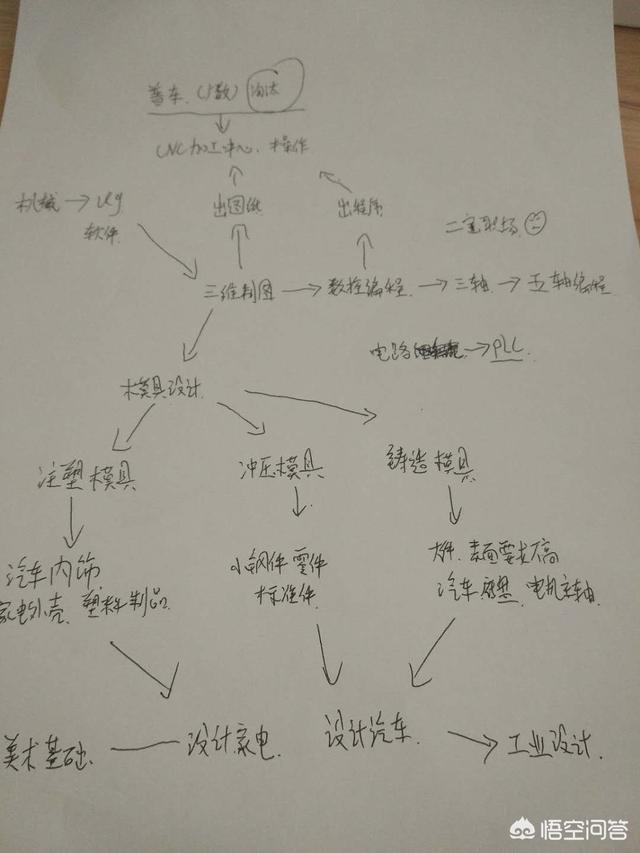 普车.(少数) 淘汰
CNC加工中心.操作
机械→ug 出图纸 出程序
软件. 二宝职场
三维制图→数控编程→三轴→五轴编程
电路→PLC.
模具设计
注塑模具 冲压模具 铸造模具
汽车内饰 小钢件零件 大件.表面要求不高
家电外壳.塑料制品. 标准件 汽车底盘.电机主轴
美术基础. 设计家电. 设计汽车. →工业设计.
悟空问答